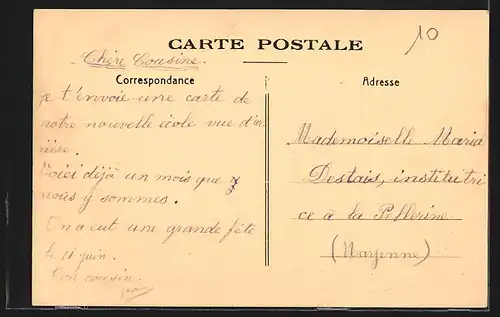 CARTE POSTALE
10
Chère Cousine.
Correspondance
Adresse
je t'envoie une carte de
notre nouvelle école vue d'ar
rière.
Voici déjà un mois que
nous y sommes.
On a eut une grande fête
le 11 juin.
Ton cousin.
Mademoiselle Maria
Destais, institutri
ce à la Pellerine
(Mayenne)